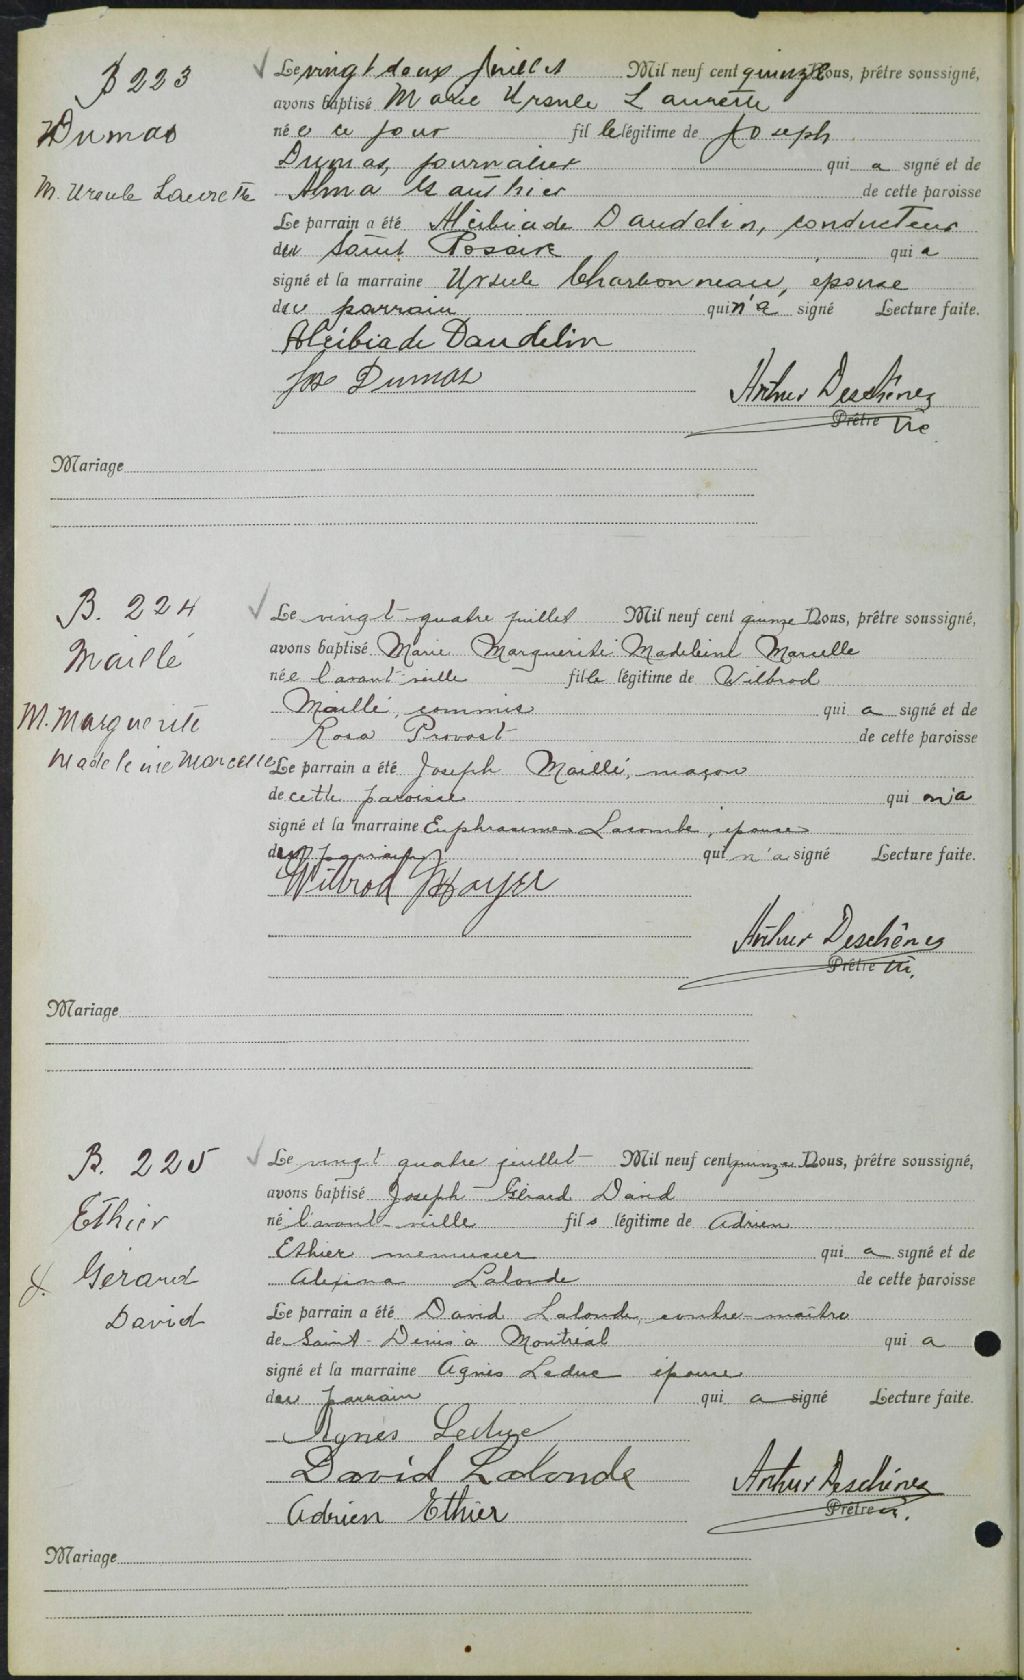 B 223
Dumas
M. Ursule Laurette
Le vingt deux juillet Mil neuf cent quinze Nous, prêtre soussigné,
avons baptisé Marie Ursule Laurette
né e ce jour fil le légitime de Joseph
Dumas, journalier qui a signé et de
Alma Gauthier de cette paroisse
Le parrain a été Alcibiade Daudelin, conducteur
du Saint Rosaire qui a
signé et la marraine Ursule Charbonneau, épouse
du parrain qui n'a signé Lecture faite.
Alcibiade Daudelin
Jos Dumas
Arthur Deschênes
Prêtre Vic
Mariage
B. 224
Maillé
M. Marguerite
Madeleine Marcelle
Le vingt-quatre juillet Mil neuf cent quinze Nous, prêtre soussigné,
avons baptisé Marie Marguerite Madeleine Marcelle
né e l'avant-veille fil le légitime de Wilbrod
Maillé, commis qui a signé et de
Rosa Provost de cette paroisse
Le parrain a été Joseph Maillé, maçon
de cette paroisse qui n'a
signé et la marraine Euphrasine Lacombe, épouse
du parrain qui n'a signé Lecture faite.
Wilbrod Mayer
Arthur Deschênes
Prêtre Vic.
Mariage
B. 225
Ethier
J. Gérard
David
Le vingt quatre juillet Mil neuf cent quinze Nous, prêtre soussigné,
avons baptisé Joseph Gérard David
né l'avant-veille fil s légitime de Adrien
Ethier menuisier qui a signé et de
Alexina Lalonde de cette paroisse
Le parrain a été David Lalonde, contre-maître
de Saint-Denis à Montréal qui a
signé et la marraine Agnès Leduc épouse
du parrain qui a signé Lecture faite.
Agnes Leduc
David Lalonde
Adrien Ethier
Arthur Deschênes
Prêtre
Mariage